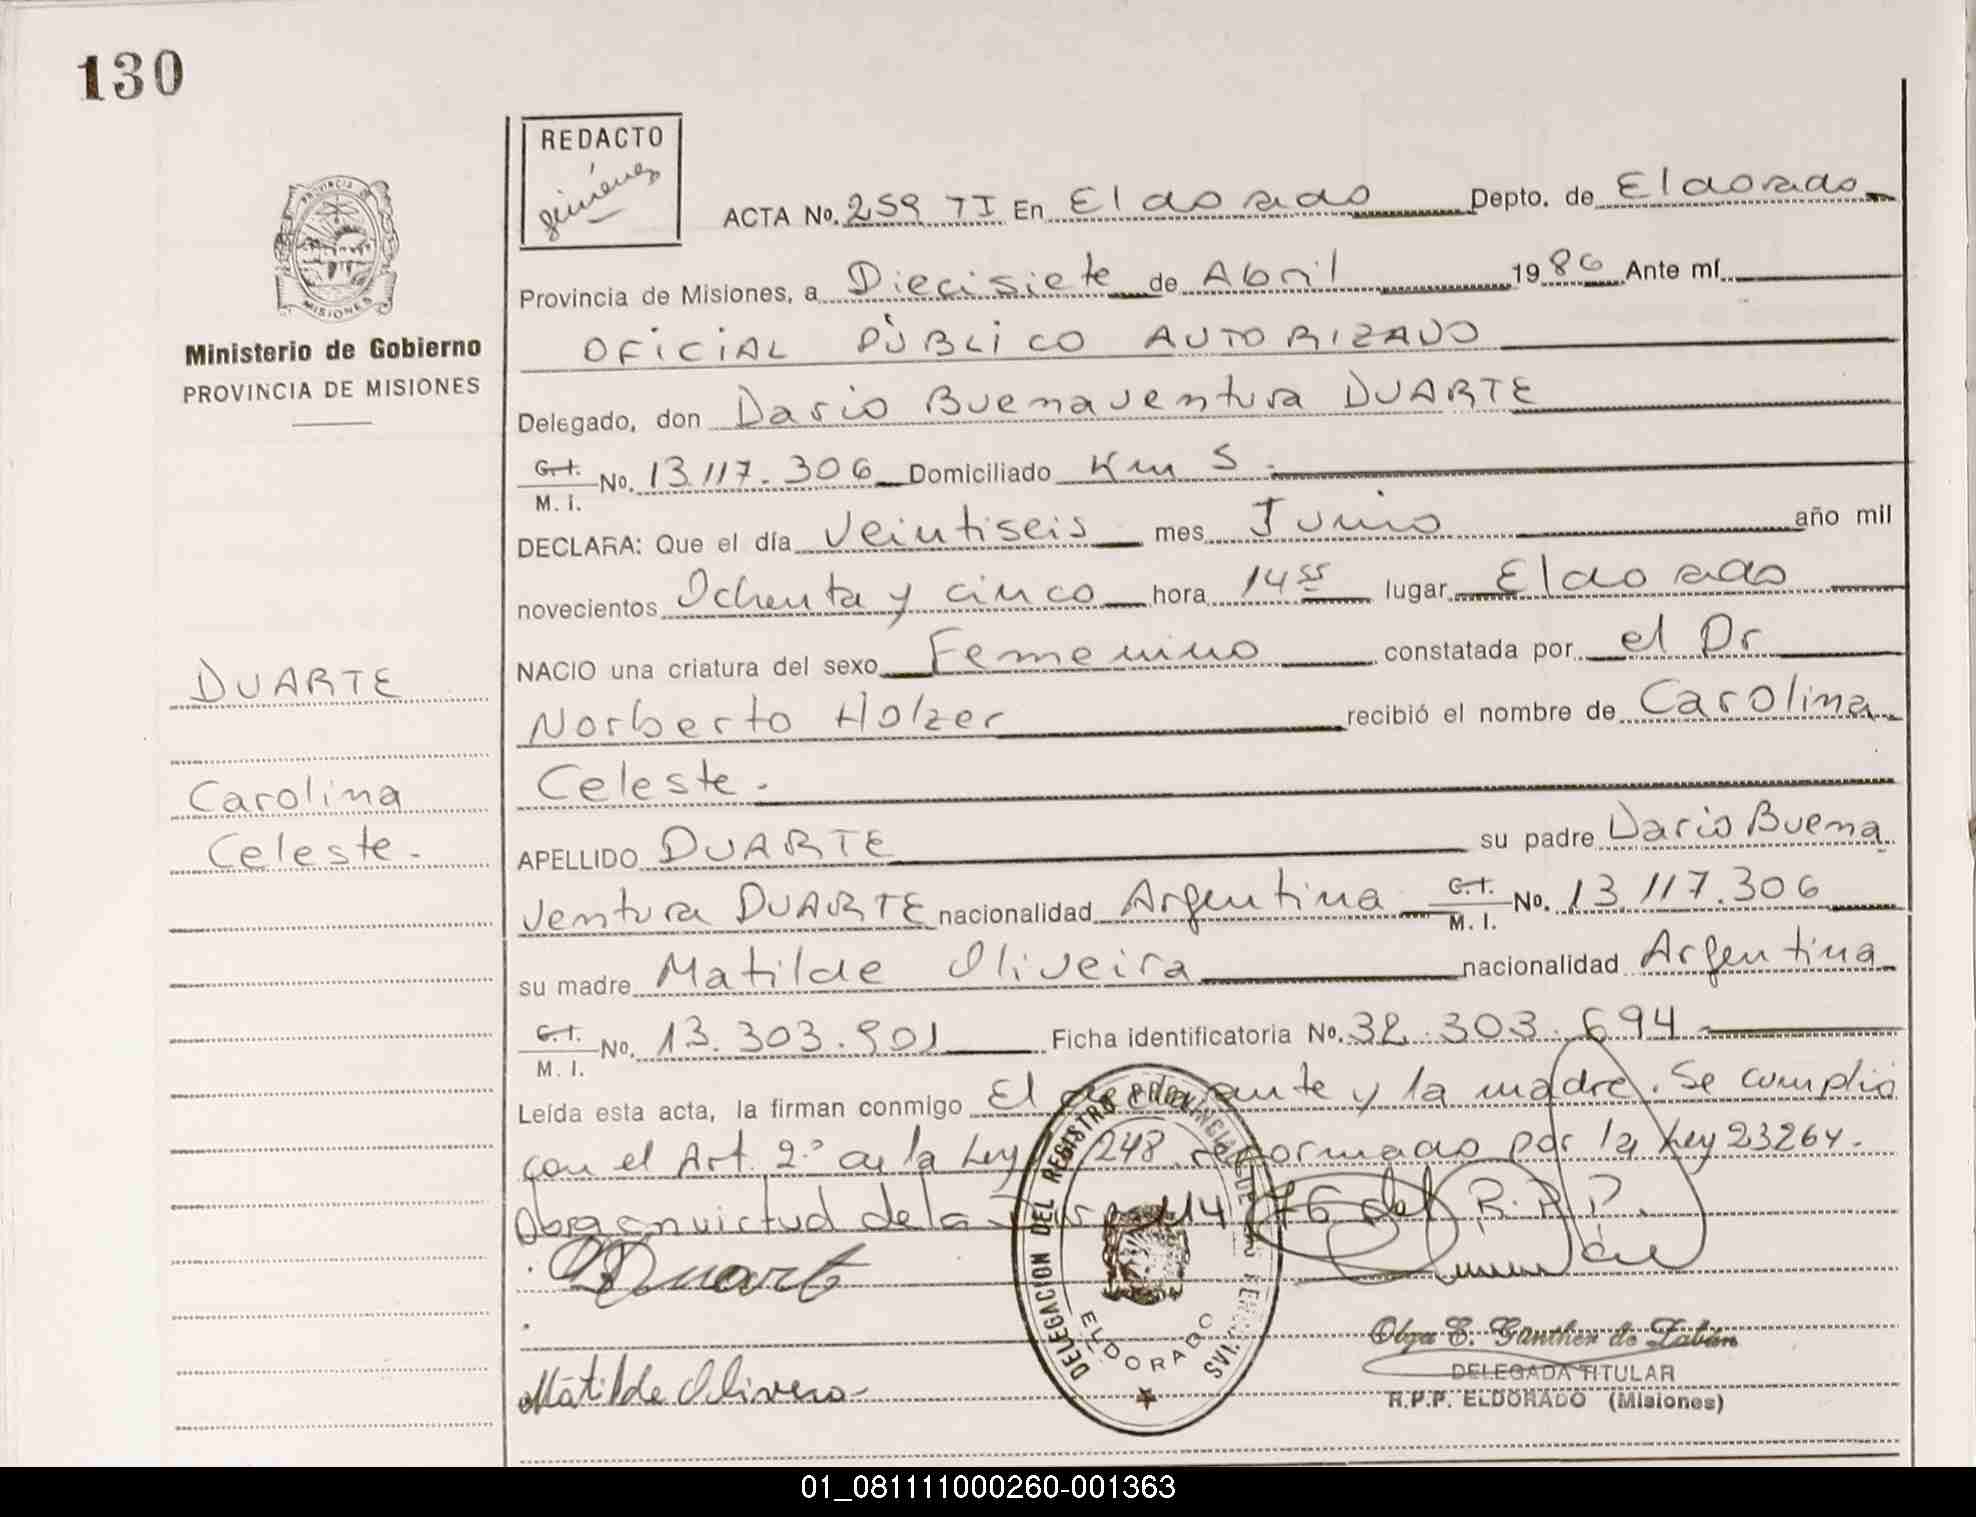 130
REDACTO
giménez
PROVINCIA DE
MISIONES
Ministerio de Gobierno
PROVINCIA DE MISIONES
ACTA No. 259 TI En Eldorado Depto. de Eldorado
Provincia de Misiones, a Diecisiete de Abril 1986 Ante mí
OFICIAL PÚBLICO AUTORIZADO
Delegado, don Dario Buenaventura DUARTE
C.I. M. I. No. 13.117.306 Domiciliado Km 5.
DECLARA: Que el día Veintiseis mes Junio año mil
novecientos Ochenta y cinco hora 14 55 lugar Eldorado
NACIO una criatura del sexo Femenino constatada por el Dr
Norberto Holzer recibió el nombre de Carolina
Celeste.
APELLIDO DUARTE su padre Dario Buena
ventura DUARTE nacionalidad Argentina C.I. M. I. No. 13.117.306
su madre Matilde Oliveira nacionalidad Argentina
C.I. M. I. No. 13.303.901 Ficha identificatoria No. 32.303.694
Leída esta acta, la firman conmigo El declarante y la madre. Se cumplio
con el Art. 2º de la Ley 248 reformado por la Ley 23264.
Obra en virtud de la Disp 114 76 del R.P.P.
DUARTE
Carolina
Celeste.
Duarte
Matilde Olivera
DELEGACION DEL REGISTRO PROVINCIAL DE LAS PERSONAS
ELDORADO
Olga E. Günther de Zabán
DELEGADA TITULAR
R.P.P. ELDORADO (Misiones)
01_081111000260-001363